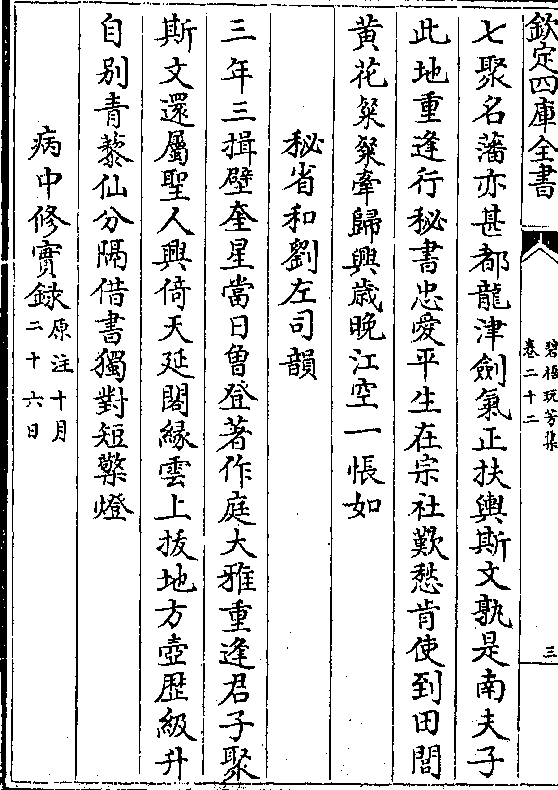 欽定四庫全書
碧梧玩芳集
卷二十二
三
七聚名藩亦甚都龍津劍氣正扶輿斯文孰是南夫子
此地重逢行秘書忠愛平生在宗社歎愁肯使到田閭
黄花粲粲牽歸興歲晚江空一悵如
秘省和劉左司韻
三年三揖壁奎星當日曾登著作庭大雅重逢君子聚
斯文還屬聖人興倚天延閣緣雲上拔地方壺歴級升
自别青藜仙分隔借書獨對短檠燈
病中修實録原注十月
二十六日